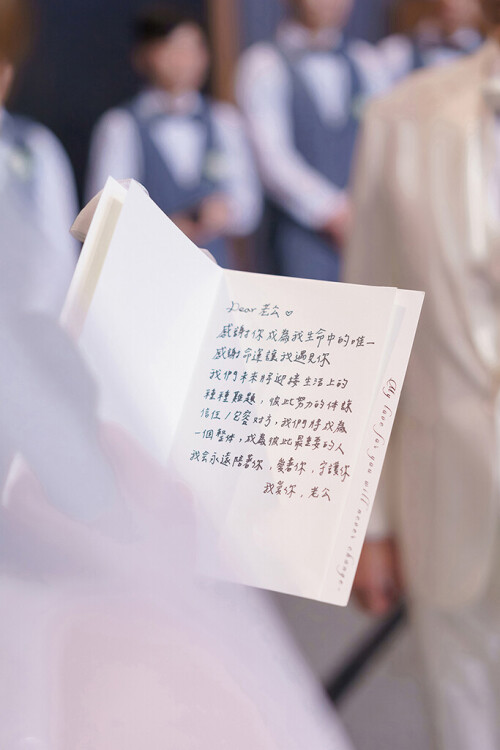 Dear 老公♡
感謝你成為我生命中的唯一
感謝命運讓我遇見你
我們未來將迎接生活上的
種種難題，彼此努力的体諒
信任/包容对方，我們將成為
一個整体，成為彼此最重要的人
我会永遠陪著你，愛著你，守護你
我愛你，老公
My love for you will never change.